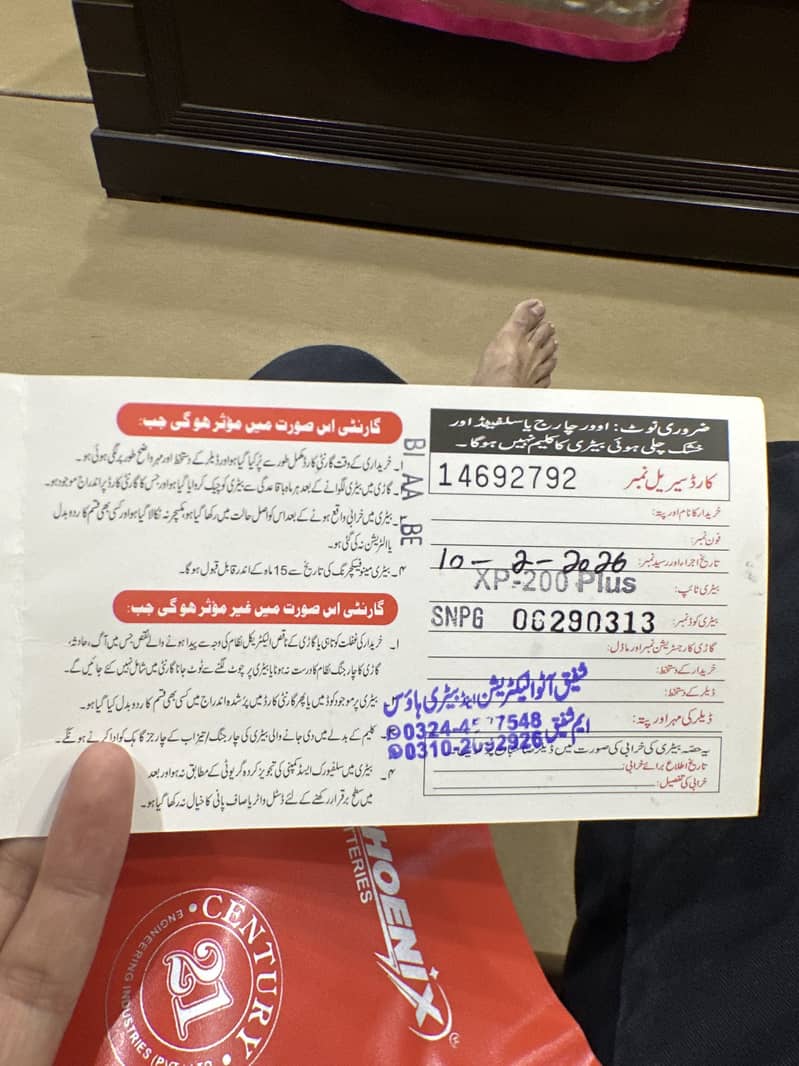 ضروری نوٹ: اوور چارج یا سلفیٹڈ اور
خشک چلی ہوئی بیٹری کا کلیم نہیں ہوگا۔
کارڈ سیریل نمبر 14692792
خریدار کا نام اور پتہ:
فون نمبر:
تاریخ اجراء اور رسید نمبر: 10-2-2026
بیٹری ٹائپ: XP-200 Plus
بیٹری کوڈ نمبر: SNPG 06290313
گاڑی کا رجسٹریشن نمبر اور ماڈل:
خریدار کے دستخط:
ڈیلر کے دستخط:
ڈیلر کی مہر اور پتہ:
شفیق آٹو الیکٹریشن اینڈ بیٹری ہاؤس
ایم شفیق
0324-4 7548
0310-2 2926
یہ حصہ بیٹری کی خرابی کی صورت میں ڈیلر
تاریخ اطلاع برائے خرابی:
خرابی کی تفصیل:
گارنٹی اس صورت میں مؤثر ہوگی جب:
۱۔ خریداری کے وقت گارنٹی کارڈ مکمل طور سے پُر کیا گیا ہو اور ڈیلر کے دستخط اور مہر واضح طور پر لگی ہوئی ہو۔
۲۔ گاڑی میں بیٹری لگوانے کے بعد ہر ماہ باقاعدگی سے بیٹری کو چیک کروایا گیا ہو اور جس کا گارنٹی کارڈ پر اندراج موجود ہو۔
۳۔ بیٹری میں خرابی واقع ہونے کے بعد اس کو اصل حالت میں رکھا گیا ہو، مکسچر نہ نکالا گیا ہو اور کسی بھی قسم کا ردو بدل
یا الٹریشن نہ کی گئی ہو۔
۴۔ بیٹری مینوفیکچرنگ کی تاریخ سے 15 ماہ کے اندر قابل قبول ہوگا۔
گارنٹی اس صورت میں غیر مؤثر ہوگی جب:
۱۔ خریدار کی غفلت کوتاہی یا گاڑی کے ناقص الیکٹریکل نظام کی وجہ سے پیدا ہونے والے نقص جس میں آگ، حادثہ،
گاڑی کا چارجنگ نظام کا درست نہ ہونا یا بیٹری پر چوٹ لگنے سے ٹوٹ جانا گارنٹی میں شامل نہیں کئے جائیں گے۔
بیٹری پر موجود کوڈ میں یا پھر گارنٹی کارڈ میں پُر شدہ اندراج میں کسی بھی قسم کا ردو بدل کیا گیا ہو۔
کلیم کے بدلے میں دی جانے والی بیٹری کی چارجنگ/تیزاب کے چارجز گاہک کو ادا کرنے ہونگے۔
۴۔ بیٹری میں سلفیورک ایسڈ کمپنی کی تجویز کردہ گریوٹی کے مطابق نہ ہو اور بعد
میں سطح برقرار رکھنے کے لئے ڈسٹل واٹر یا صاف پانی کا خیال نہ رکھا گیا ہو۔
PHOENIX
BATTERIES
CENTURY
21
ENGINEERING INDUSTRIES